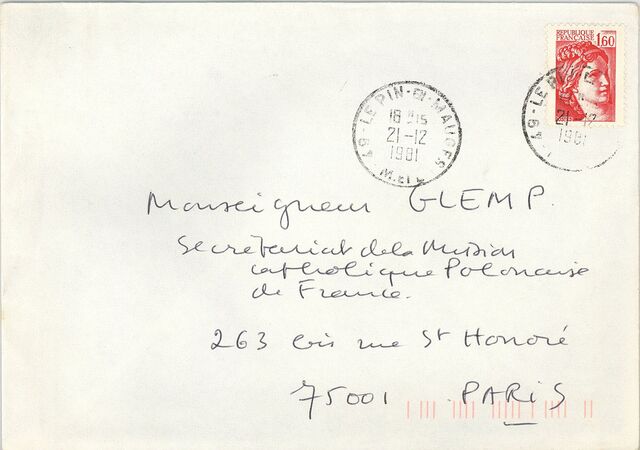 REPUBLIQUE
FRANÇAISE 1,60
49 - LE PIN-EN-MAUGES
18 H 15
21-12
1981
49 - LE PIN
21-12
1981
Monseigneur GLEMP.
Secrétariat de la Mission
catholique Polonaise
de France.
263 bis rue St Honoré
75001 PARIS